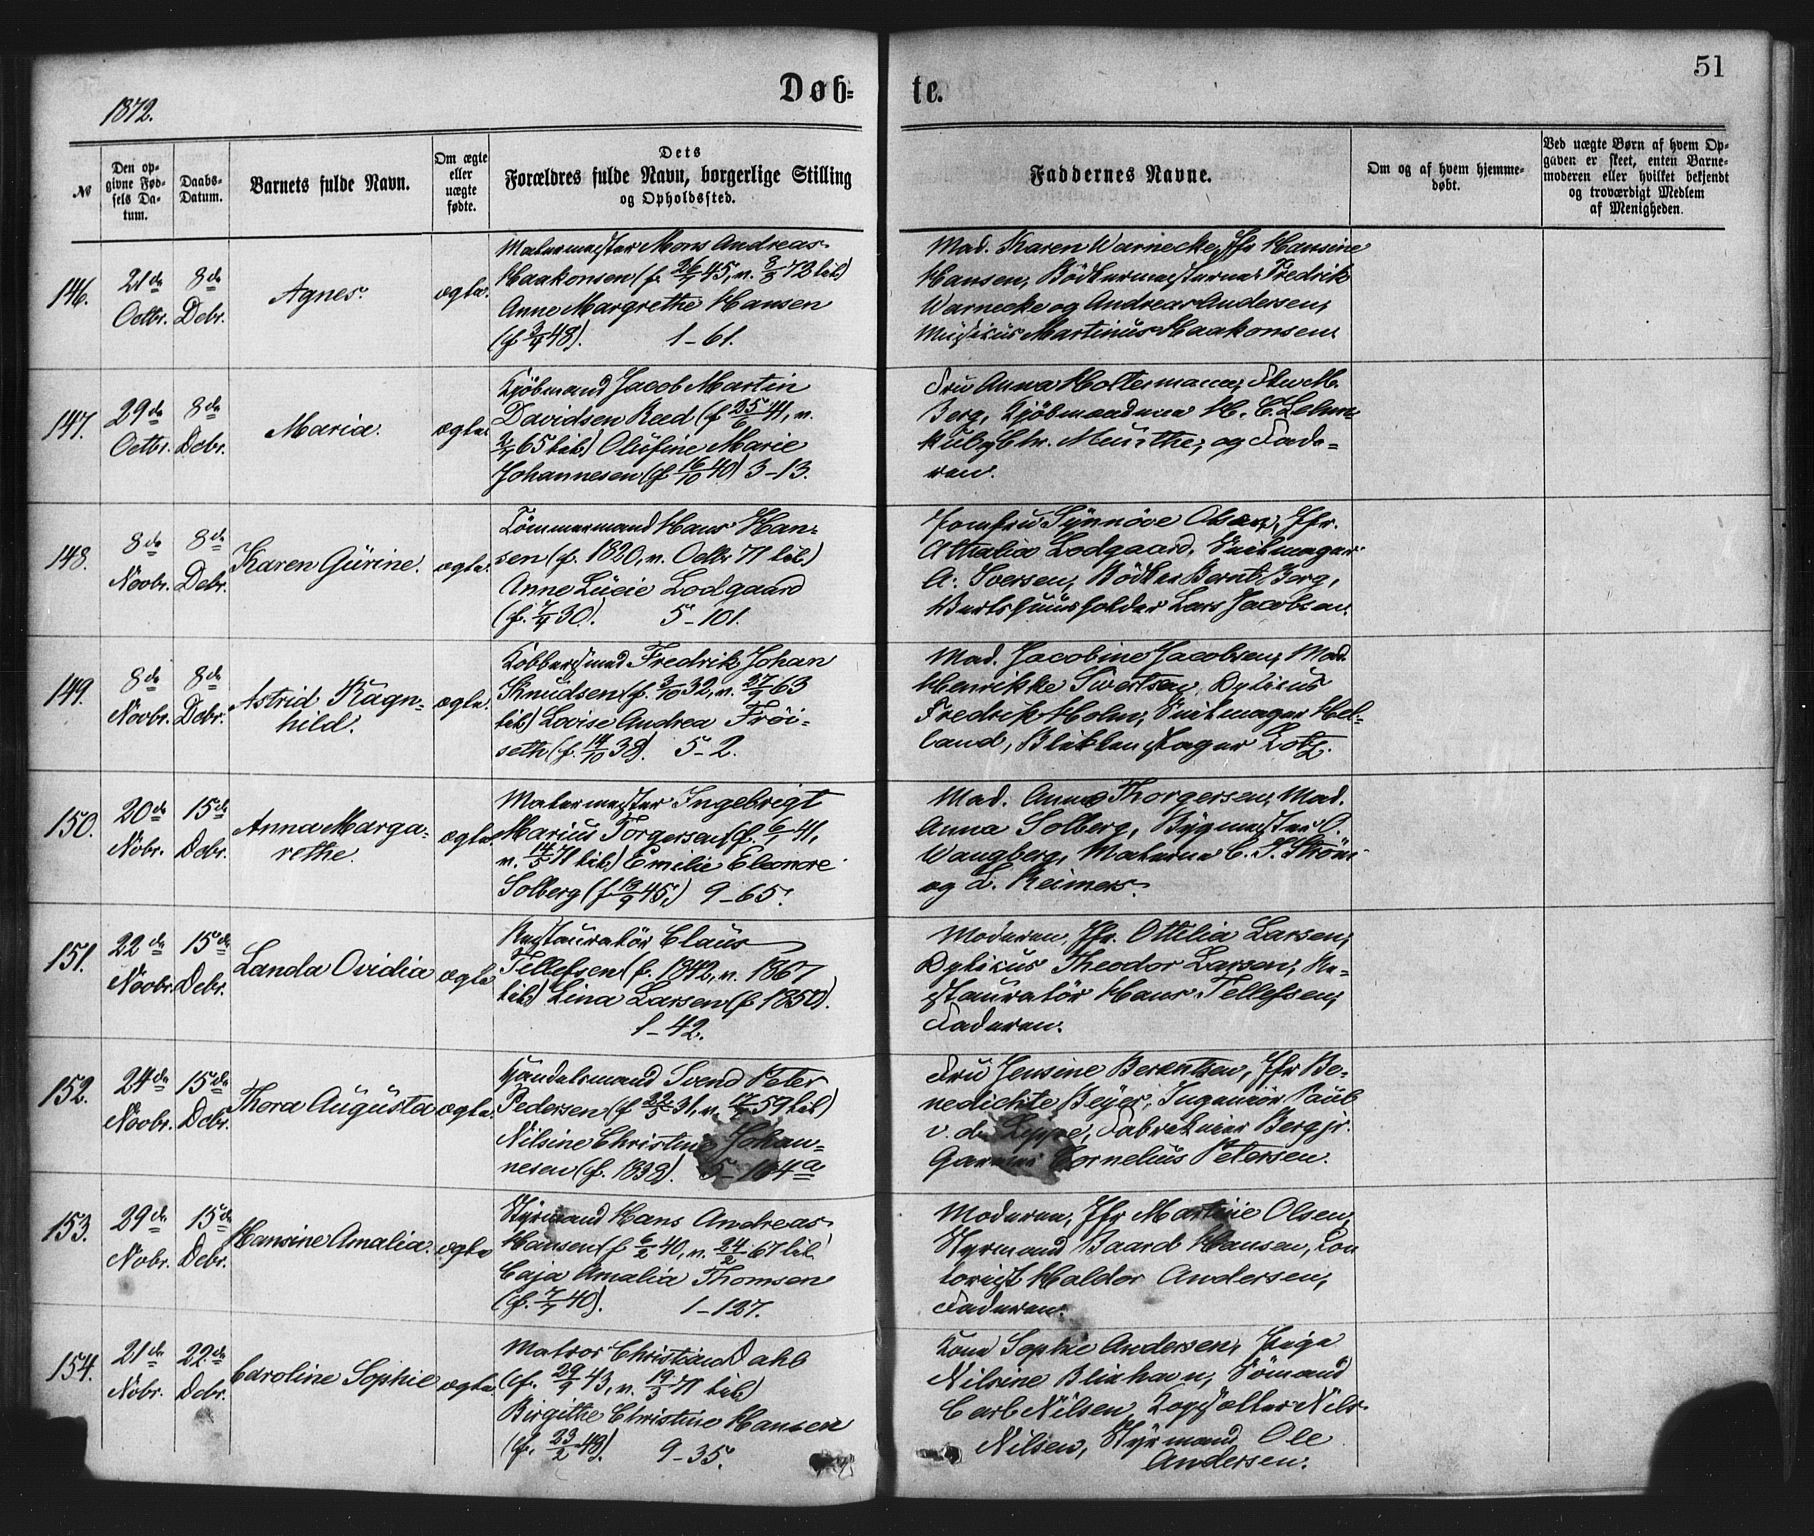 51
1872.
Døb-
te.
№
Den op-
givne Fød-
sels Da-
tum.
Daabs-
Datum.
Barnets fulde Navn.
Om ægte
eller
uægte
fødte.
Dets
Forældres fulde Navn, borgerlige Stilling
og Opholdssted.
Faddernes Navne.
Om og af hvem hjemme-
døbt.
Ved uægte Børn af hvem Op-
gaven er skeet, enten Barne-
moderen eller hvilket bekjendt
og troværdigt Medlem
af Menigheden.
146. 21de Octbr. 8de Debr. Agnes. ægte.
Malermester Mons Andreas
Haakonsen (f. 26/7 45, v. 8/3 72 lib)
Anne Margrethe Hansen
(f. 48). 1-61.
Mad. Karen Warnecke, Jfr Hansine
Hansen, Bødkermesterne Fredrik
Warnecke og Andreas Andersen,
Musicus Martinus Haakonsen.
147. 29de Octbr. 8de Debr. Maria. ægte.
Kjøbmand Jacob Martin
Davidsen Reed (f 25/6 41, v.
65 lib) Olufine Marie
Johannesen (f. 16/10 40) 3-13.
Fru Anna Holtermann, Frk M.
Berg, Kjøbmændene H. C.
Chr. Meurthe, og Fade-
ren.
148. 8de Novbr. 8de Debr. Karen Gurine. ægte.
Tømmermand Hans Han-
sen (f. 1820, v. Octb. 71 lib)
Anne Lucie Lodgaard
(f. 7/9 30). 5-101.
Jomfru Synnöve Olsen, Jfr.
Athalia Lodgaard, Snitmager
A. Iversen, Bødker Bernt Berg,
Vertshuusholder Lars Jacobsen.
149. 8de Novbr. 8de Debr. Astrid Ragn-
hild. ægte.
Kobbersmed Fredrik Johan
Knudsen (f. 3/10 32, v. 27/9 63
lib) Lovise Andrea Fröi-
seth (f. 14/10 38). 5-2.
Mad. Jacobine Jacobsen, Mad.
Henrikke Sivertsen, Dykker
Fredrik Holm, Snitmager Hel-
land, Blikkenslager Lotz.
150. 20de Nobr. 15de Debr. Anna Marga-
rethe. ægte.
Malermester Ingebrigt
Marius Torgersen (f. 6/1 41,
v. 14/5 71 lib) Emilie Eleonore
Solberg (f. 19/9 45) 9-65.
Mad. Anna Thorgersen, Mad.
Anna Solberg, Bygmester O.
Wangberg, Malerne C. J. Ström
og L. Reimers.
151. 22de Novbr. 15de Debr. Landa Ovidia ægte
Restauratör Claus
Tellefsen (f. 1842, v. 1867
lib) Lina Larsen (f. 1850).
1-42.
Moderen, Jfr. Ottilia Larsen,
Theodor Larsen, Re-
stauratör Hans Tellefsen,
Faderen.
152. 24de Novbr. 15de Debr. Thora Augusta ægte.
Handelsmand Svend Peter
Pedersen (f 22/5 31, v. 59 lib)
Nilsine Christine Johan-
nesen (f. 1838). 5-104a
Fru Jensine Berentsen, Jfr Be-
nedichte Beyer, Ingeniör Paul
v. d. Lippe, Fabrikeier Berg jr.
Garver Cornelius Petersen.
153. 29de Nobr. 15de Debr. Hansine Amalia. ægte
Styrmand Hans Andreas
Hansen (f 6/2 40, v. 24/2 67 lib)
Caja Amalia Thomsen
(f. 40). 1-127.
Moderen, Jfr Martine Olsen,
Styrmand Baard Hansen, Con-
torist Haldor Andersen,
Faderen.
154. 21de Nobr. 22de Debr. Caroline Sophie ægte
Matros Christian Dahl
(f. 29/9 43, v. 19/3 71 lib)
Birgithe Christine Hansen
(f. 23/2 48). 9-35.
Kone Sophie Andersen, Pige
Nilsine Blixhavn, Sömand
Carl Nilsen, Nils
Nilsen, Styrmand Ole
Andersen.